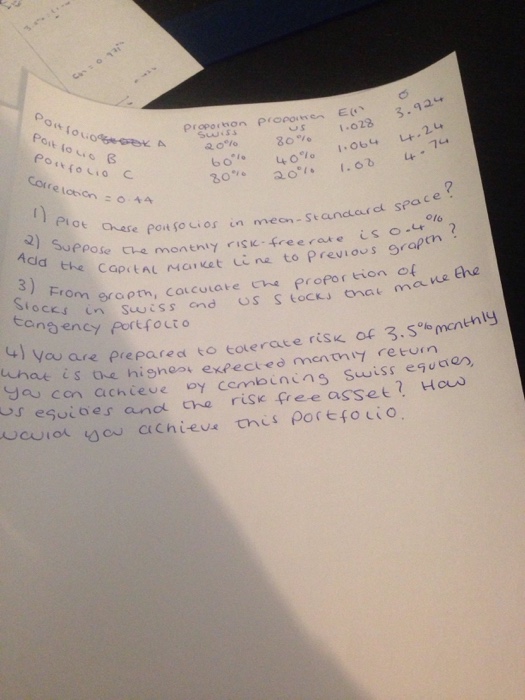 proportion swiss proportion us E(r) σ
Portfolio A 20% 80% 1.028 3.924
Portfolio B 60% 40% 1.064 4.24
Portfolio C 80% 20% 1.08 4.74
Correlation = 0.44
1) Plot these portfolios in mean-standard space?
2) Suppose the monthly risk-free rate is 0.4%
Add the Capital Market Line to previous graph?
3) From graph, calculate the proportion of
Stocks in Swiss and US Stocks that make the
tangency portfolio
4) You are prepared to tolerate risk of 3.5% monthly
what is the highest expected monthly return
you can achieve by combining Swiss equties,
us equities and the risk free asset? How
would you achieve this portfolio.